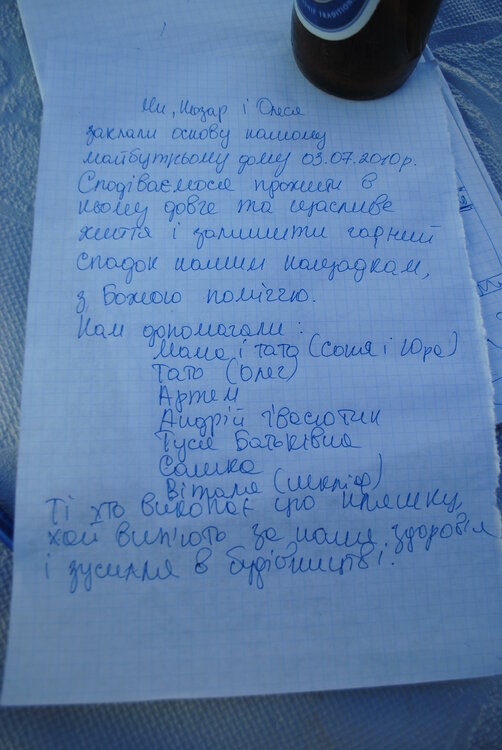 TRADITION
Ми, Назар і Олеся
заклали основу нашому
майбутньому дому 03.07.2010р.
Сподіваємося прожити в
ньому довге та щасливе
життя і залишити гарний
спадок нашим нащадкам,
з Божою поміччю.
Нам допомагали:
Мама і тато (Соня і Юра)
Тато (Олег)
Артем
Андрій Івасютик
Туся Батьківна
Сашка
Віталя (шкліф)
Ті хто викопає цю пляшку,
хай вип'ють за наше здоровля
і зусилля в будівництві.